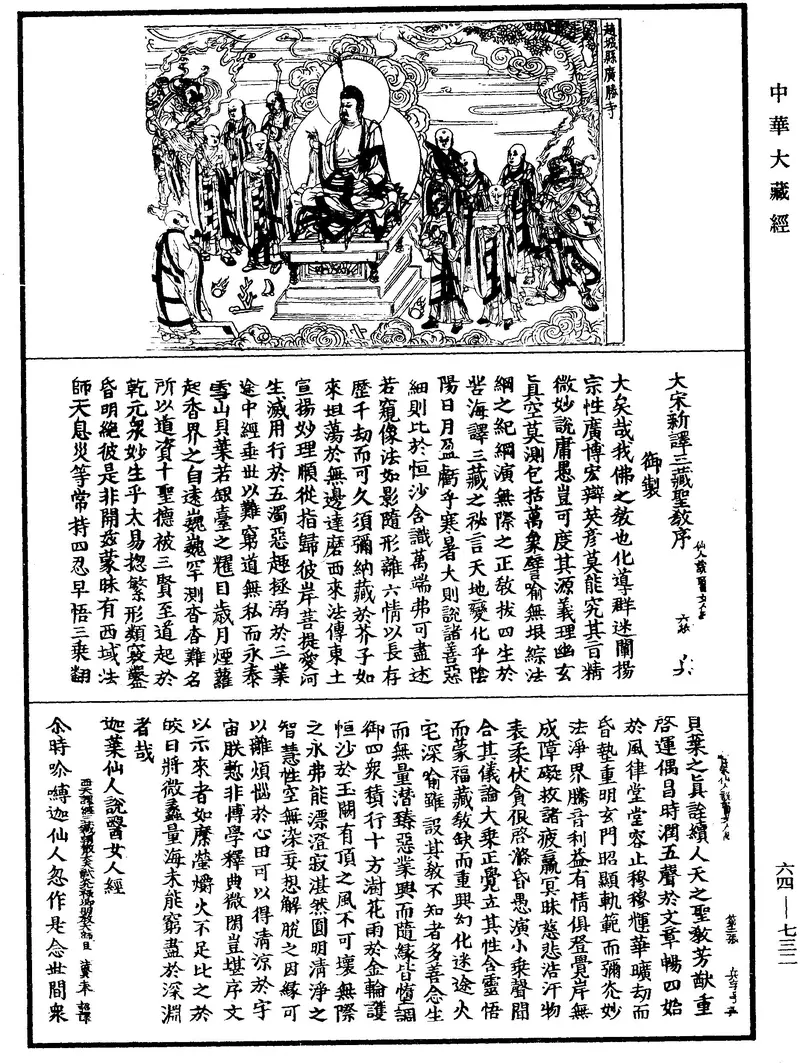 中華大藏經
趙城縣廣勝寺
大宋新譯三藏聖教序
御製
大矣哉我佛之教也化導群迷闡揚
宗性廣博宏辯英彥莫能究其旨精
微妙說庸愚豈可度其源義理幽玄
真空莫測包括萬象譬喻無垠綜法
綱之紀綱演無際之正教拔四生於
苦海譯三藏之祕言天地變化乎陰
陽日月盈虧乎寒暑大則說諸善惡
細則比於恒沙含識萬端弗可盡述
若窺像法如影隨形離六情以長存
歷千劫而可久須彌納藏於芥子如
來坦蕩於無邊達磨西來法傳東土
宣揚妙理順從指歸彼岸菩提愛河
生滅用行於五濁惡趣拯溺於三業
途中經垂世以難窮道無私而永泰
雪山貝葉若銀臺之耀目歲月煙蘿
起香界之自遠巍巍罕測杳杳難名
所以道資十聖德被三賢至道起於
乾元衆妙生乎太易揔繁形類竅鑿
昏明絕彼是非開茲蒙昧有西域法
師天息災等常持四忍早悟三乘翻
貝葉之真詮續人天之聖教芳猷重
啓運偶昌時潤五聲於文章暢四始
於風律堂堂容止穆穆輝華曠劫而
昏墊重明玄門昭顯軌範而彌光妙
法淨界騰音利益有情俱登覺岸無
成障礙救諸疲羸冥昧慈悲浩汗物
表柔伏貪很啓滌昏愚演小乘聲聞
合其儀論大乘正覺立其性含靈悟
而蒙福藏教缺而重興幻化迷途火
宅深喻雖設其教不知者多善念生
而無量潛臻惡業興而隨緣皆墮調
御四衆積行十方澍花雨於金輪護
恒沙於玉闕有頂之風不可壞無際
之水弗能漂澄寂湛然圓明清淨之
智慧性空無染妄想解脫之因緣可
以離煩惱於心田可以得清涼於宇
宙朕慙非博學釋典微閑豈堪序文
以示來者如縻螢爝火不足比之於
皎日將微蠡量海未能窮盡於深淵
者哉
迦葉仙人說醫女人經
尒時吤嚩迦仙人忽作是念世間衆
六四—七三二